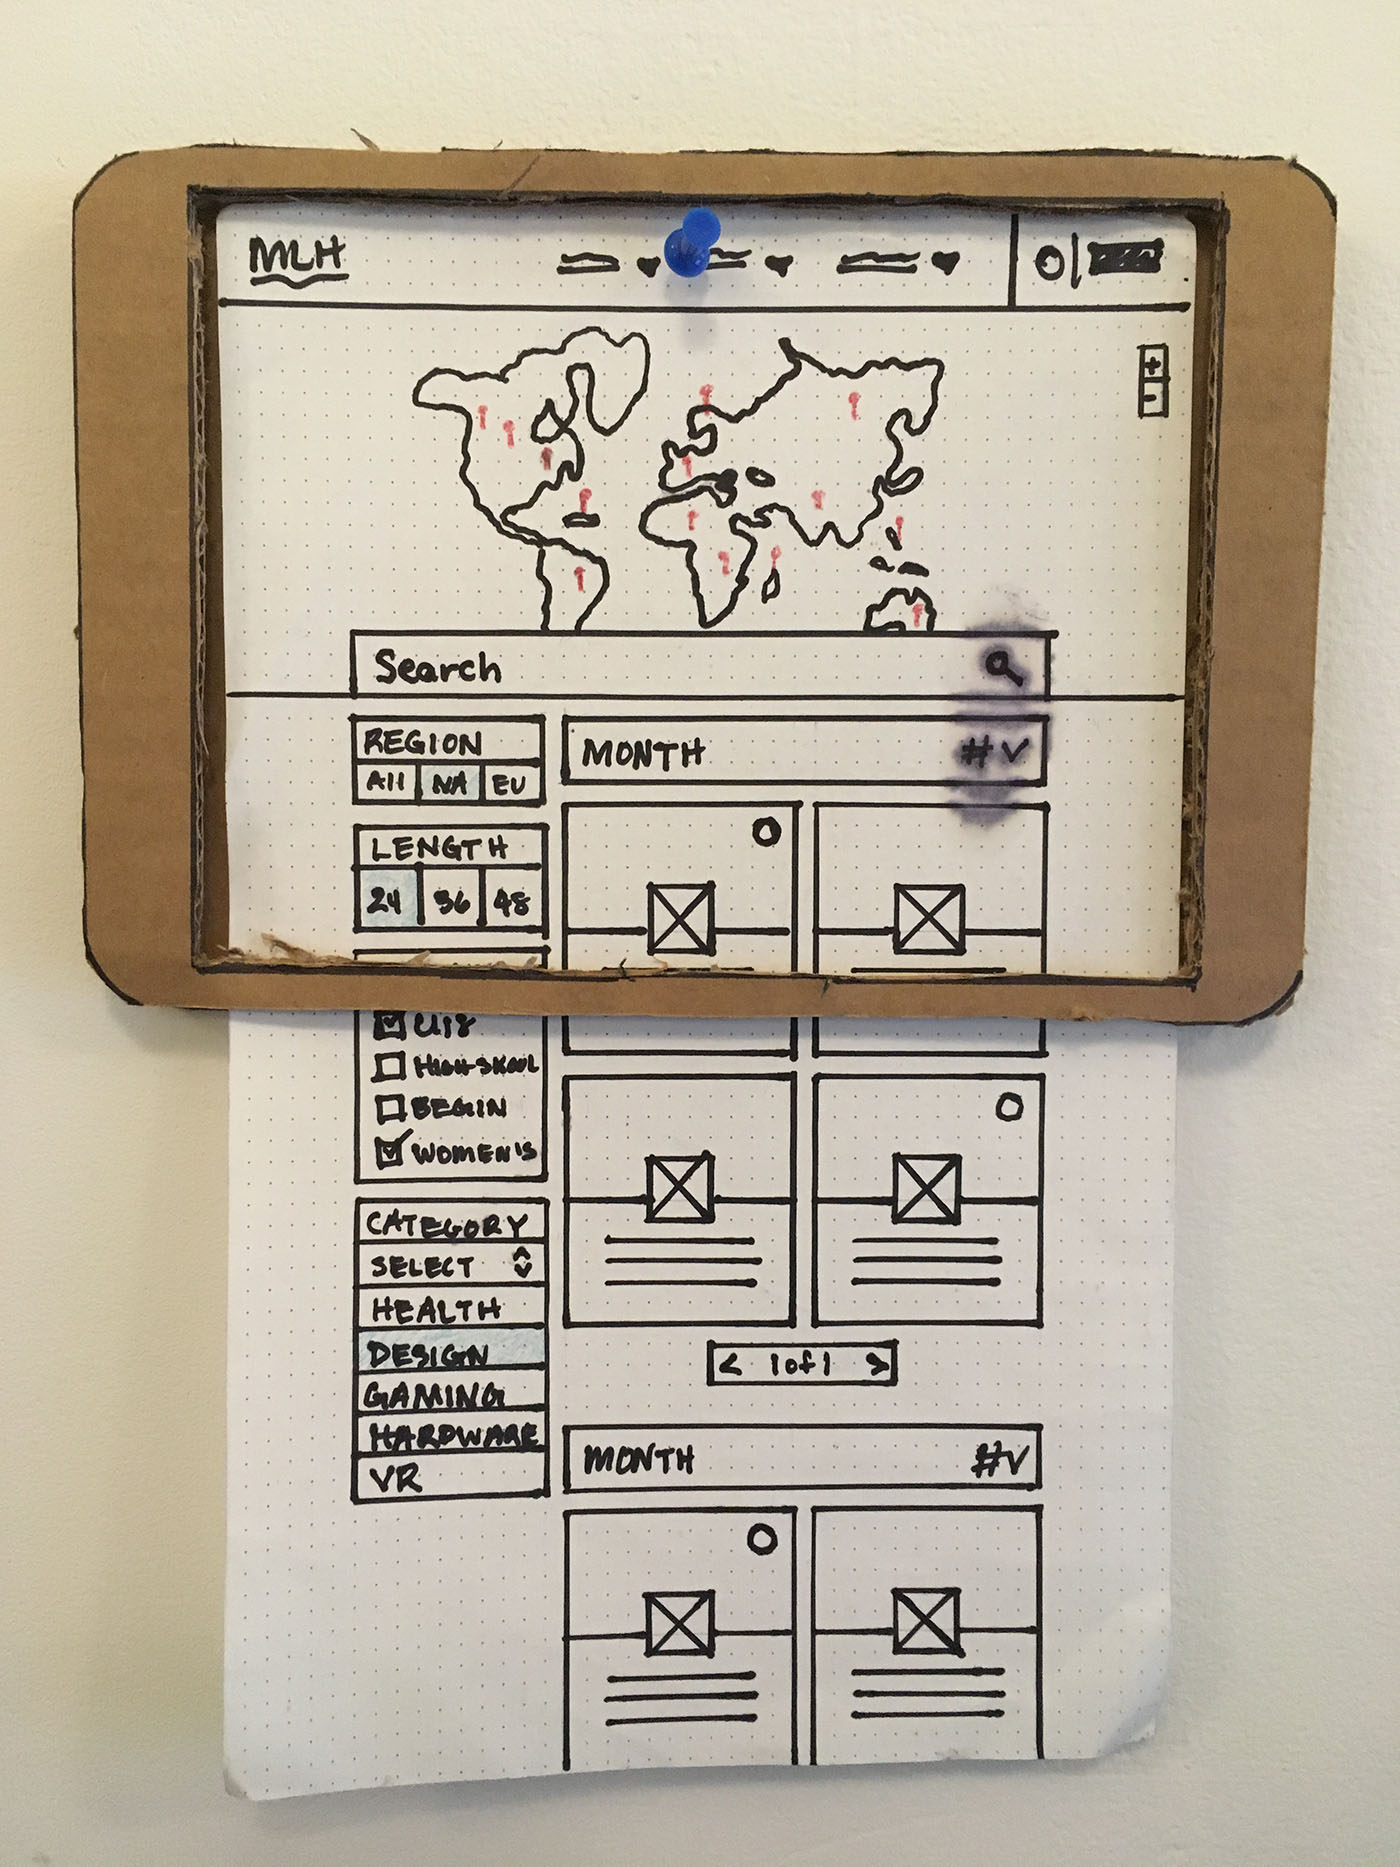 MLH
+
-
Search
REGION
All NA EU
LENGTH
24 36 48
MONTH #V
HIGH-SKOOL
BEGIN
WOMEN'S
CATEGORY
SELECT
HEALTH
DESIGN
GAMING
HARDWARE
VR
< 1 of 1 >
MONTH #V